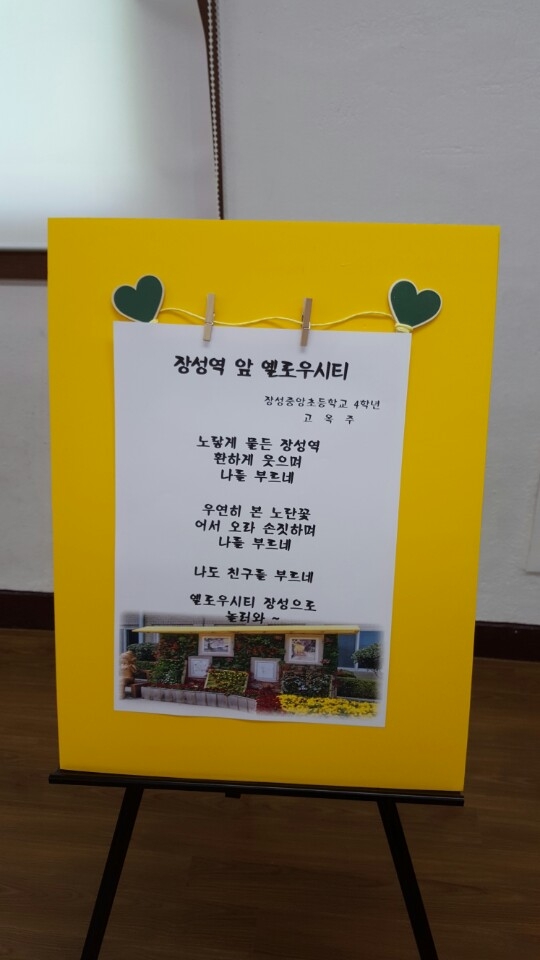 장성역 앞 옐로우시티
장성중앙초등학교 4학년
고 옥 주
노랗게 물든 장성역
환하게 웃으며
나를 부르네
우연히 본 노란꽃
어서 오라 손짓하며
나를 부르네
나도 친구를 부르네
옐로우시티 장성으로
놀러와 ~